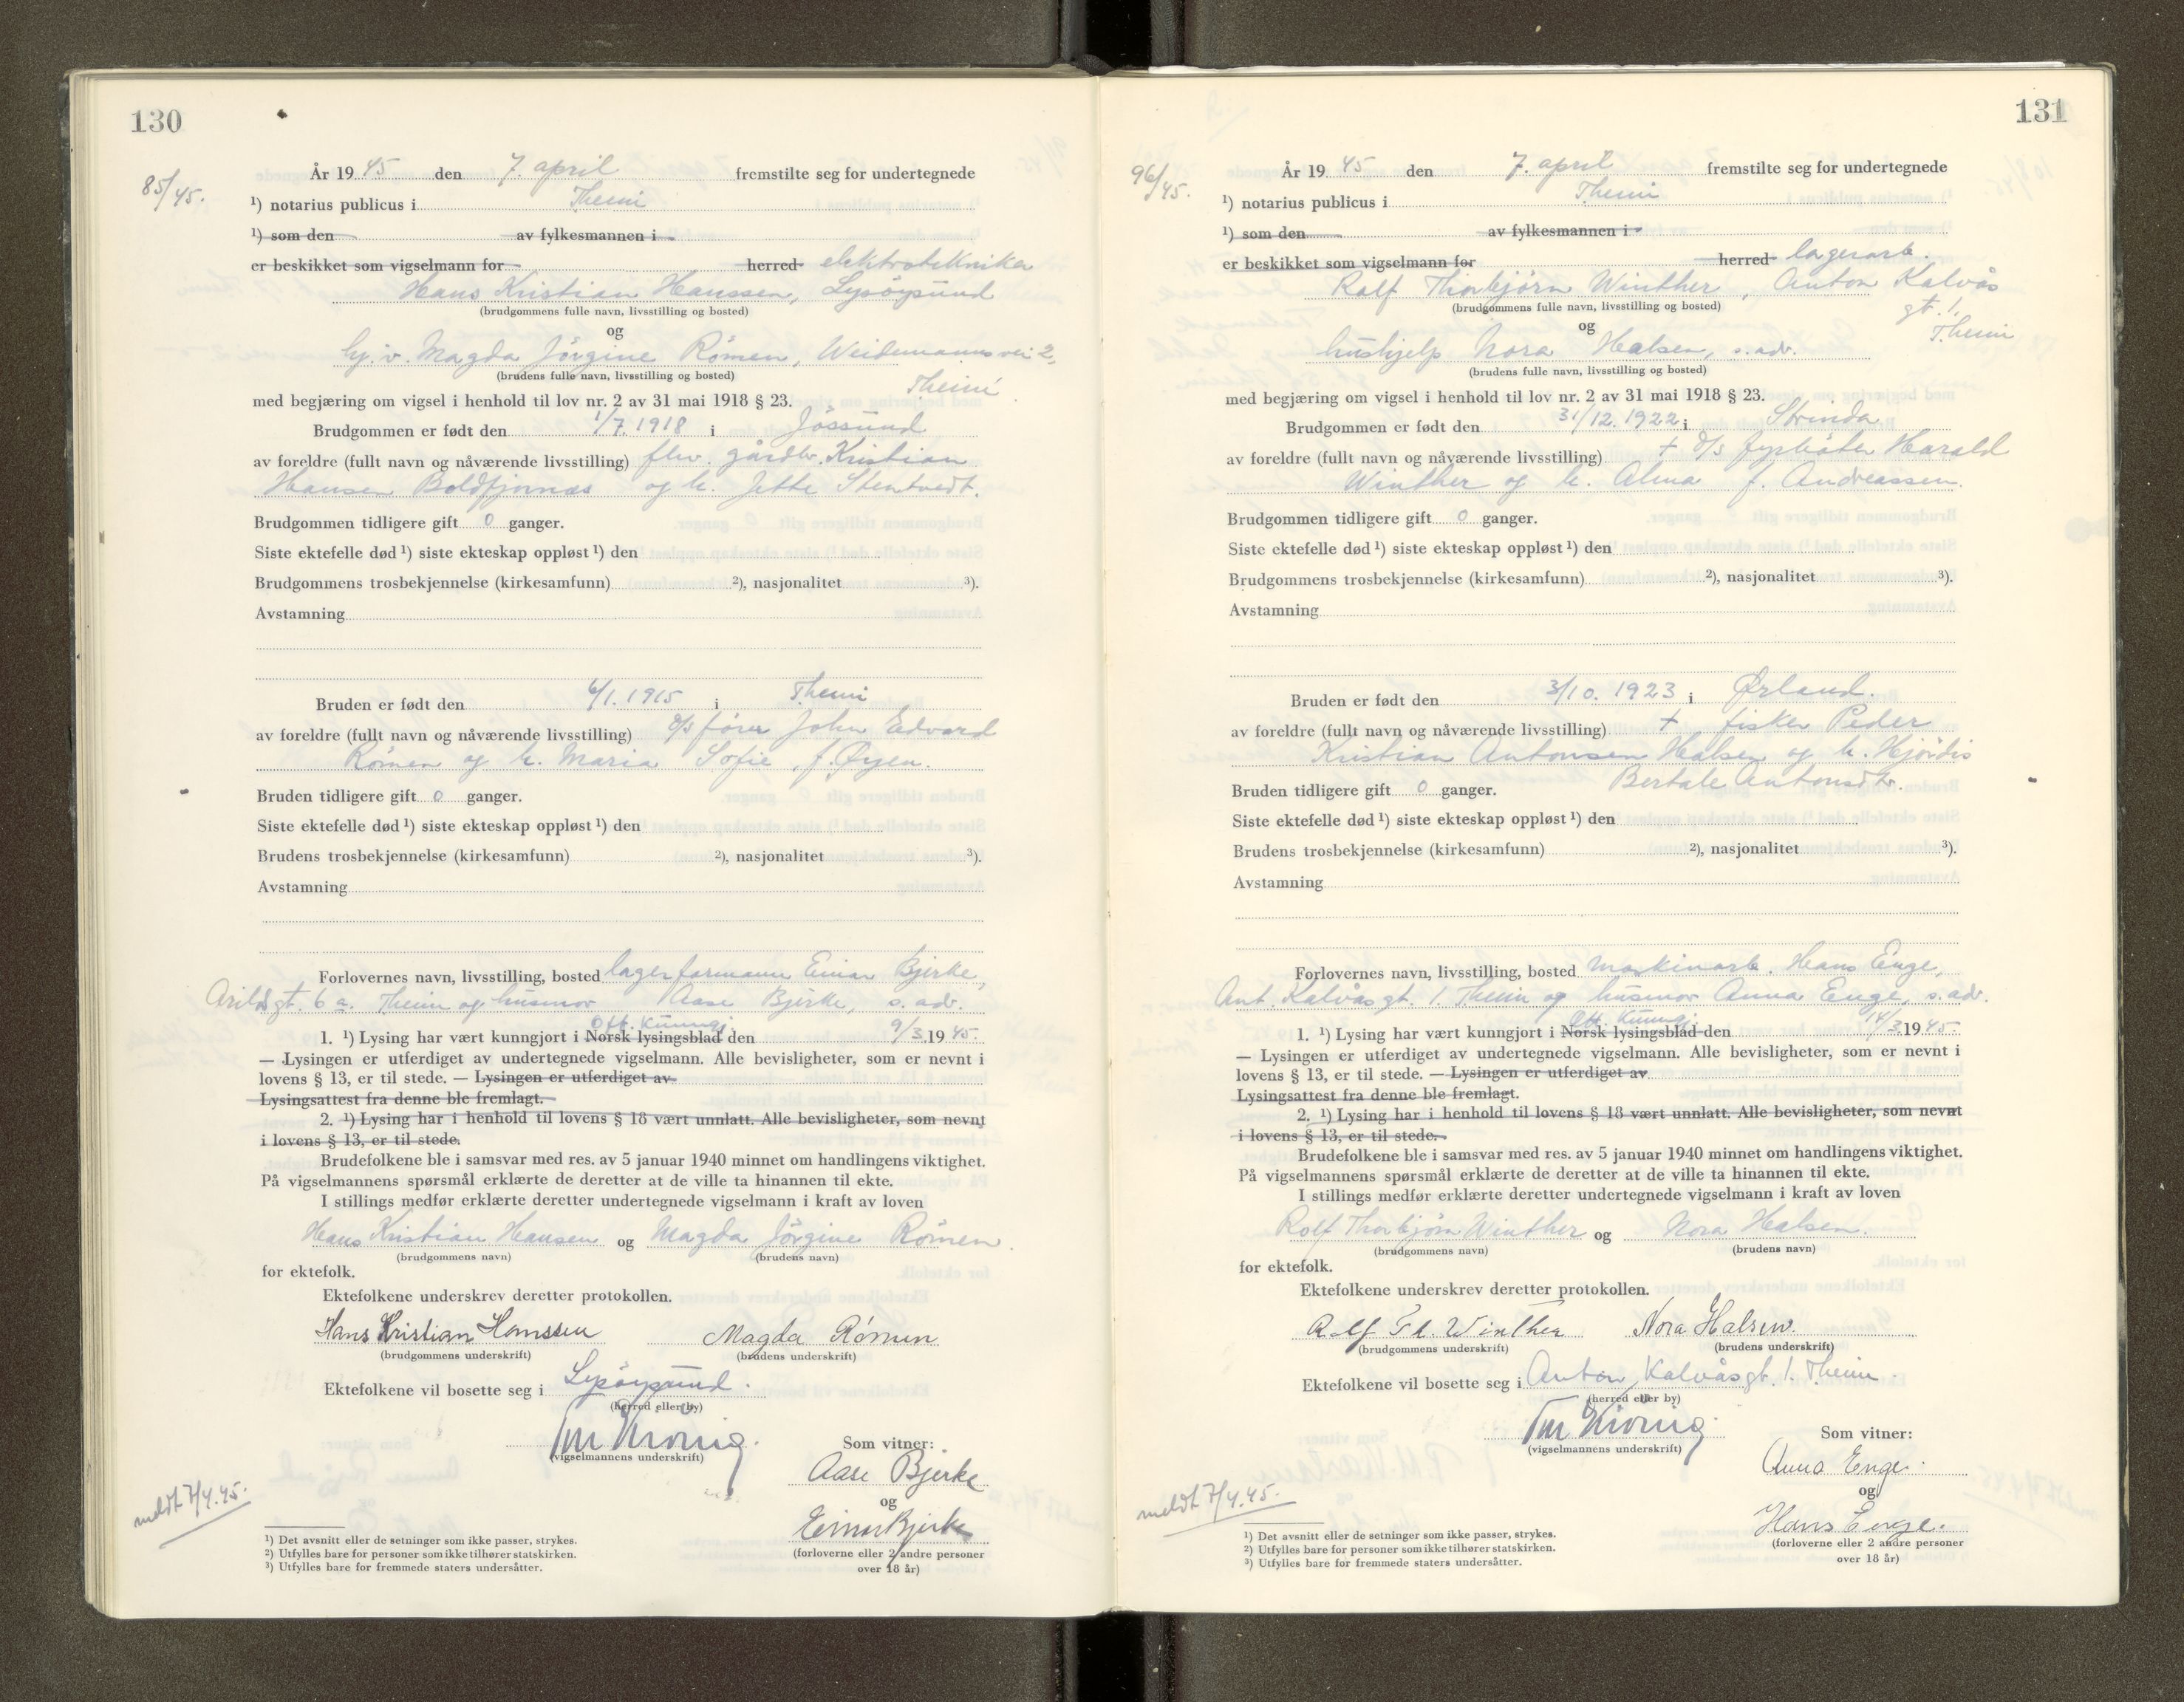 130
85/45.
År 1945 den 7. april fremstilte seg for undertegnede
¹) notarius publicus i Theim
¹) som den av fylkesmannen i
er beskikket som vigselmann for herred elektrotekniker
Hans Kristian Hanssen, Lysøysund
(brudgommens fulle navn, livsstilling og bosted)
og
hj.v. Magda Jörgine Römen, Weidemannsvei 2,
(brudens fulle navn, livsstilling og bosted) Theim
med begjæring om vigsel i henhold til lov nr. 2 av 31 mai 1918 § 23.
Brudgommen er født den 1/7. 1918 i Jössund
av foreldre (fullt navn og nåværende livsstilling) flv. gårdbr. Kristian
Hansen Boldfjornæs og h. Jette Stentvedt.
Brudgommen tidligere gift 0 ganger.
Siste ektefelle død ¹) siste ekteskap oppløst ¹) den
Brudgommens trosbekjennelse (kirkesamfunn) ²), nasjonalitet ³).
Avstamning
Bruden er født den 6/1. 1915 i Theim
av foreldre (fullt navn og nåværende livsstilling) d/s fører John Edvard
Römen og h. Maria Sofie, f. Øyen.
Bruden tidligere gift 0 ganger.
Siste ektefelle død ¹) siste ekteskap oppløst ¹) den
Brudens trosbekjennelse (kirkesamfunn) ²), nasjonalitet ³).
Avstamning
Forlovernes navn, livsstilling, bosted lagerformann Einar Bjerke,
Arildsgt. 6 a. Theim og husmor Aase Bjerke, s. adr.
Off. kunngj.
1. ¹) Lysing har vært kunngjort i Norsk lysingsblad den 9/3 1945.
— Lysingen er utferdiget av undertegnede vigselmann. Alle bevisligheter, som er nevnt i
lovens § 13, er til stede. — Lysingen er utferdiget av
Lysingsattest fra denne ble fremlagt.
2. ¹) Lysing har i henhold til lovens § 18 vært unnlatt. Alle bevisligheter, som nevnt
i lovens § 13, er til stede.
Brudefolkene ble i samsvar med res. av 5 januar 1940 minnet om handlingens viktighet.
På vigselmannens spørsmål erklærte de deretter at de ville ta hinannen til ekte.
I stillings medfør erklærte deretter undertegnede vigselmann i kraft av loven
Hans Kristian Hansen og Magda Jörgine Römen.
(brudgommens navn) (brudens navn)
for ektefolk.
Ektefolkene underskrev deretter protokollen.
Hans Kristian Hanssen Magda Römen
(brudgommens underskrift) (brudens underskrift)
Ektefolkene vil bosette seg i Lysøysund.
(herred eller by)
(vigselmannens underskrift) Som vitner:
Aase Bjerke
og
Einar Bjerke
(forloverne eller 2 andre personer
over 18 år)
meldt 7/4.45.
¹) Det avsnitt eller de setninger som ikke passer, strykes.
²) Utfylles bare for personer som ikke tilhører statskirken.
³) Utfylles bare for fremmede staters undersåtter.
131
96/45.
År 1945 den 7. april fremstilte seg for undertegnede
¹) notarius publicus i Theim
¹) som den av fylkesmannen i
er beskikket som vigselmann for herred lagerarb.
Rolf Thorbjörn Winther, Anton Kalvås
(brudgommens fulle navn, livsstilling og bosted) gt. 1.
og Theim
hushjelp Nora Halsen, s. adr.
(brudens fulle navn, livsstilling og bosted)
med begjæring om vigsel i henhold til lov nr. 2 av 31 mai 1918 § 23.
Brudgommen er født den 31/12. 1922 i Strinda
av foreldre (fullt navn og nåværende livsstilling) + d/s fyrbøter Harald
Winther og h. Alma f. Andreassen.
Brudgommen tidligere gift 0 ganger.
Siste ektefelle død ¹) siste ekteskap oppløst ¹) den
Brudgommens trosbekjennelse (kirkesamfunn) ²), nasjonalitet ³).
Avstamning
Bruden er født den 3/10. 1923 i Ørland.
av foreldre (fullt navn og nåværende livsstilling) + fisker Peder
Kristian Antonsen Halsen og h. Hjördis
Bruden tidligere gift 0 ganger. Bertale Antonsdtr.
Siste ektefelle død ¹) siste ekteskap oppløst ¹) den
Brudens trosbekjennelse (kirkesamfunn) ²), nasjonalitet ³).
Avstamning
Forlovernes navn, livsstilling, bosted maskinarb. Hans Enge,
Ant. Kalvåsgt. 1. Theim og husmor Anna Enge, s. adr.
Off. kunngj.
1. ¹) Lysing har vært kunngjort i Norsk lysingsblad den 14/3 1945.
— Lysingen er utferdiget av undertegnede vigselmann. Alle bevisligheter, som er nevnt i
lovens § 13, er til stede. — Lysingen er utferdiget av
Lysingsattest fra denne ble fremlagt.
2. ¹) Lysing har i henhold til lovens § 18 vært unnlatt. Alle bevisligheter, som nevnt
i lovens § 13, er til stede.
Brudefolkene ble i samsvar med res. av 5 januar 1940 minnet om handlingens viktighet.
På vigselmannens spørsmål erklærte de deretter at de ville ta hinannen til ekte.
I stillings medfør erklærte deretter undertegnede vigselmann i kraft av loven
Rolf Thorbjörn Winther og Nora Halsen.
(brudgommens navn) (brudens navn)
for ektefolk.
Ektefolkene underskrev deretter protokollen.
Rolf Th. Winther Nora Halsen.
(brudgommens underskrift) (brudens underskrift)
Ektefolkene vil bosette seg i Anton Kalvåsgt. 1. Theim.
(herred eller by)
(vigselmannens underskrift) Som vitner:
Anna Enge.
og
Hans Enge.
(forloverne eller 2 andre personer
over 18 år)
meldt 7/4.45.
¹) Det avsnitt eller de setninger som ikke passer, strykes.
²) Utfylles bare for personer som ikke tilhører statskirken.
³) Utfylles bare for fremmede staters undersåtter.